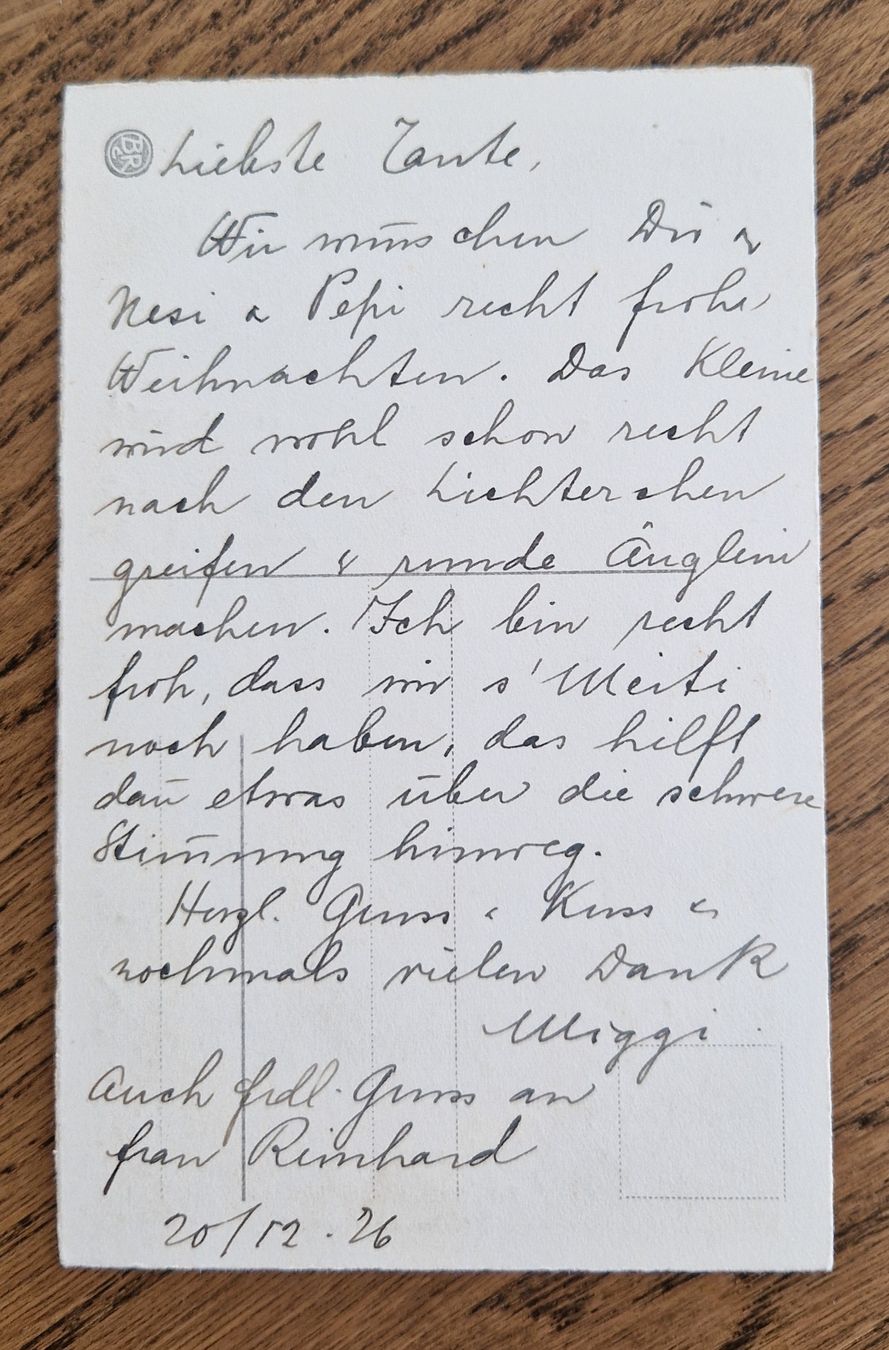 Liebste Tante,
Wir wünschen Dir &
Nesi & Pepi recht frohe
Weihnachten. Das Kleine
wird wohl schon recht
nach den Lichterchen
greifen & runde Äuglein
machen. Ich bin recht
froh, dass wir s' Meiti
noch haben, das hilft
dan̄ etwas über die schwere
Stim̄ung hinweg.
Herzl. Gruss & Kuss &
nochmals vielen Dank
Miggi
Auch frdl. Gruss an
Frau Reinhard
20/12.26